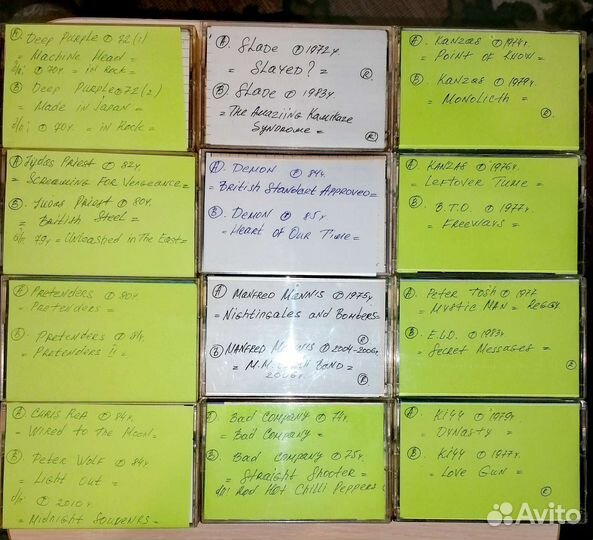 A. Deep Purple 72(1)
= Machine Head =
d/i: 70г. = in Rock =
Б Deep Purple 72(2)
= Made in Japan =
d/o: 70г. = in Rock =
A. Slade 1972г.
= Slayed? =
R
Б Slade 1983г.
= The Amaziing Kamikaze
Syndrome =
R
A. Kanzas 1974г.
= Point of Know =
Б. Kanzas 1979г.
= Monolicth =
R
A Judas Priest 82г.
= Screaming For Vengeance =
Б. Judas Priest 80г.
= British Steel =
d/i 79г. = Unleashed in The East =
A. Demon 84г.
= British Standart Approved =
Б. Demon 85г.
= Heart of Our Time =
A. Kanzas 1976г.
= Leftover Ture =
Б. B.T.O. 1977г.
= Freeways =
A. Pretenders 80г.
= Pretenders =
Б. Pretenders 81г.
= Pretenders !! =
A Manfred Mann's 1975г.
= Nightingales and Bombers =
R
Б Manfred Mann's 2004-2006г.
= M.M. Band =
2006г.
R
A. Peter Tosh 1977
= Mystic Man = Reggy
Б. E.L.O. 1983г.
= Secret Messages =
R
A Chris Rea 84г.
= Wired to The Moon =
Б Peter Wolf 84г.
= Light Out =
d/i: 2010г.
= Midnight Souvenirs =
A. Bad Company 74г.
= Bad Company =
Б. Bad Company 75г.
= Straight Shooter =
d/i: Red Hot Chilli Peppers
A. Kiss 1979г.
= Dynasty =
Б. Kiss 1977г.
= Love Gun =
R
Avito